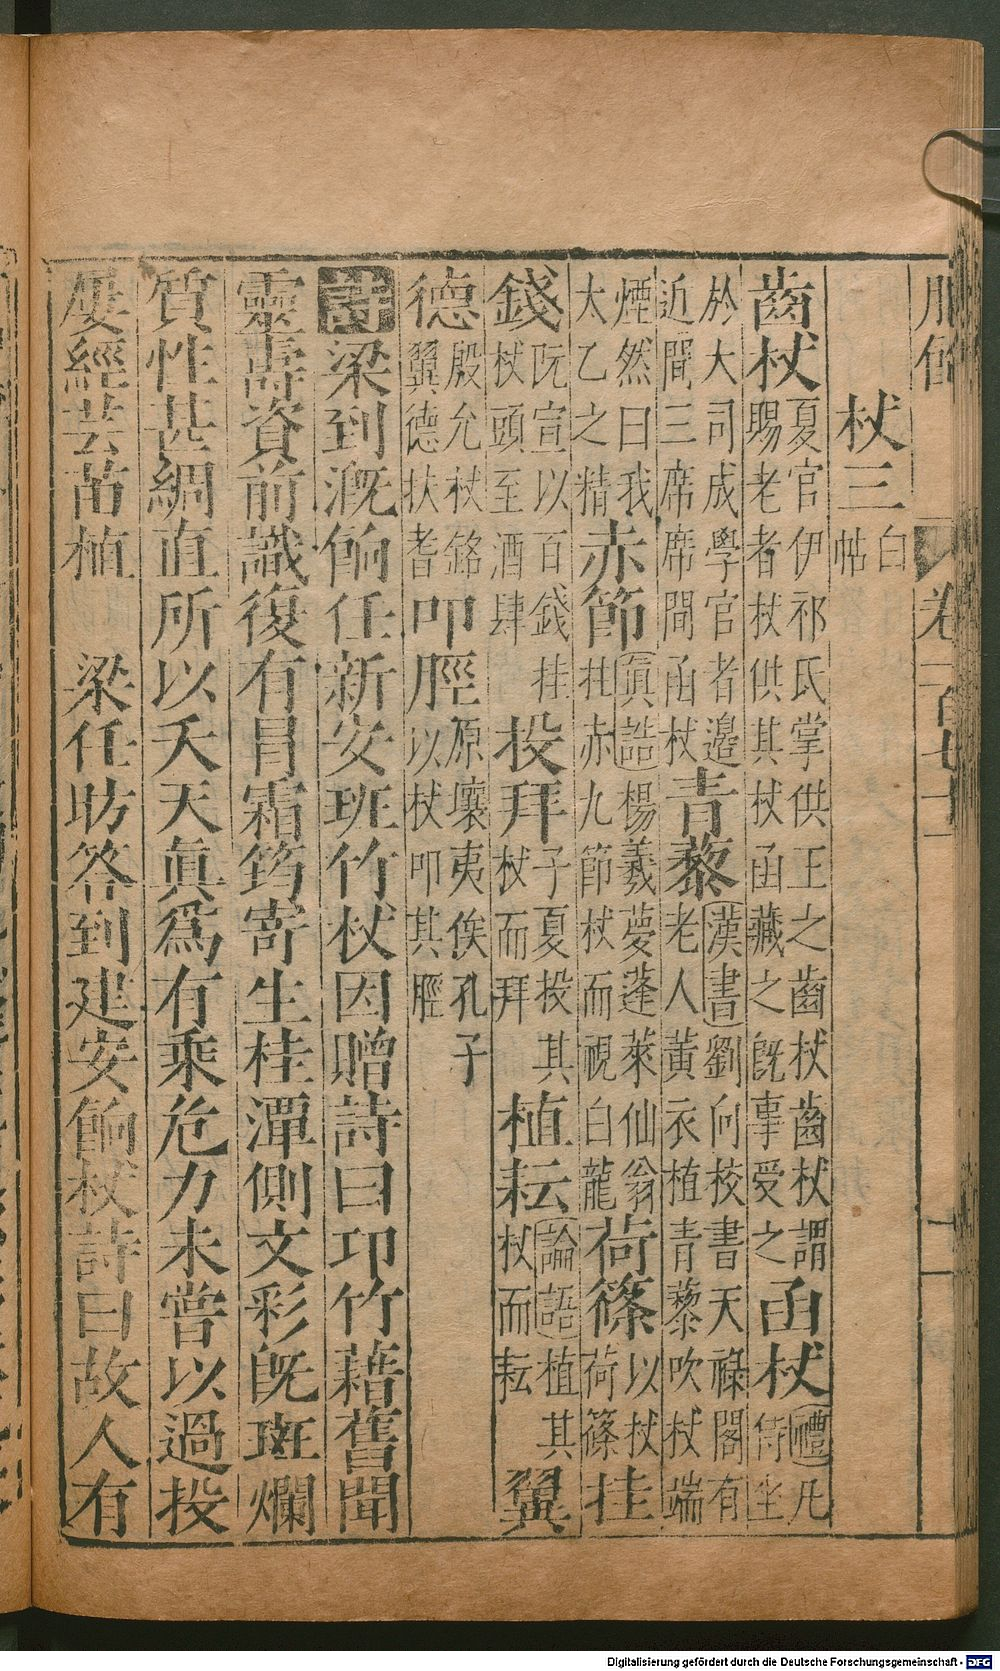 杖三白帖
齒杖夏官伊祁氏掌供王之齒杖齒杖謂賜老者杖供其杖函藏之旣事受之函杖禮凡侍坐
於大司成學官者邉近間三席席間函杖青藜漢書劉向校書天祿閣有老人黃衣植青藜吹杖端
煙然曰我太乙之精赤節眞誥楊羲夢蓬萊仙翁拄赤九節杖而視白龍荷篠以杖荷篠挂
錢阮宣以百錢挂杖頭至酒肆投拜子夏投其杖而拜植耘論語植其杖而耘翼
德殷允杖銘翼德扶耆叩脛原壤夷俟孔子以杖叩其脛
詩梁到溉餉任新安班竹杖因贈詩曰卭竹藉舊聞
靈壽資前識復有冒霜筠寄生桂潭側文彩旣斑爛
質性甚綢直所以夭天眞爲有乘危力未嘗以過投
屢經芸苗植　梁任昉答到建安餉杖詩曰故人有
Digitalisierung gefördert durch die Deutsche Forschungsgemeinschaft - DFG